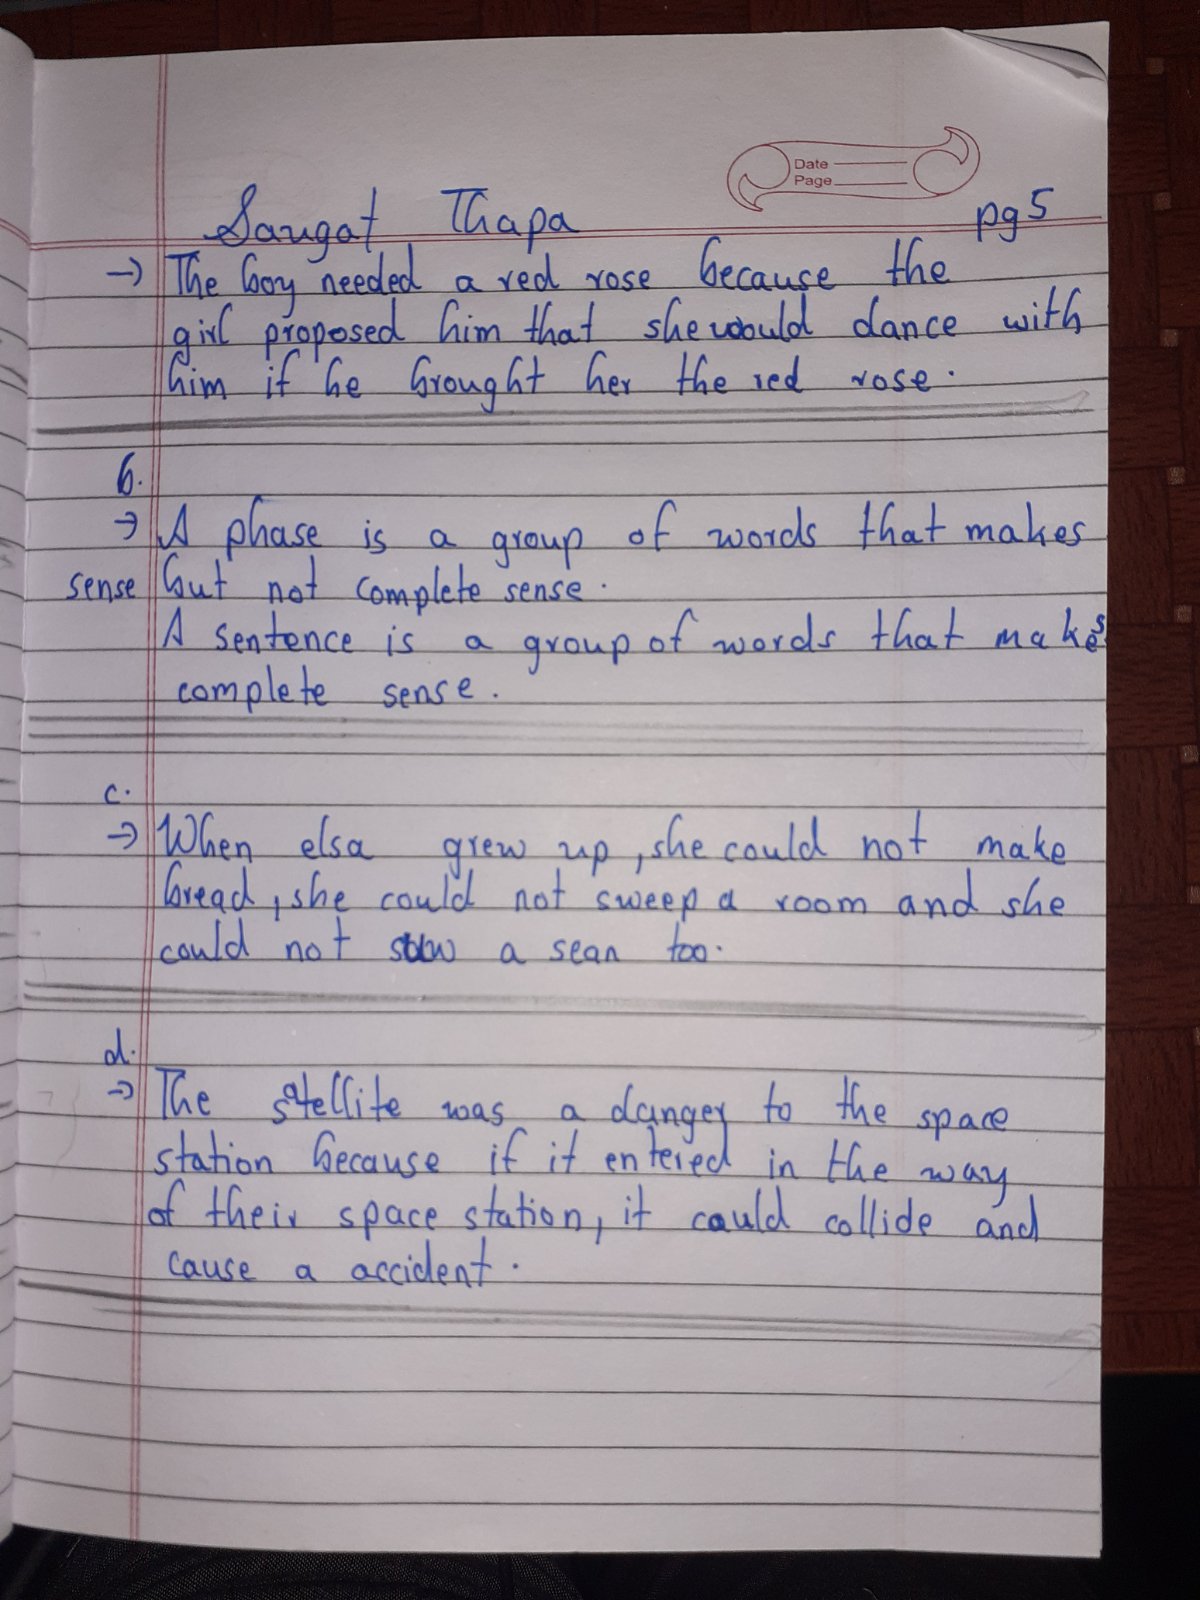 Date
Page
Saugat Thapa pg 5
→ The boy needed a red rose because the
girl proposed him that she would dance with
him if he brought her the red rose.
b.
→ A phase is a group of words that makes
sense but not complete sense.
A sentence is a group of words that makes
complete sense.
c.
→ When elsa grew up, she could not make
bread, she could not sweep a room and she
could not sew a sean too.
d.
→ The satellite was a danger to the space
station because if it entered in the way
of their space station, it could collide and
cause a accident.